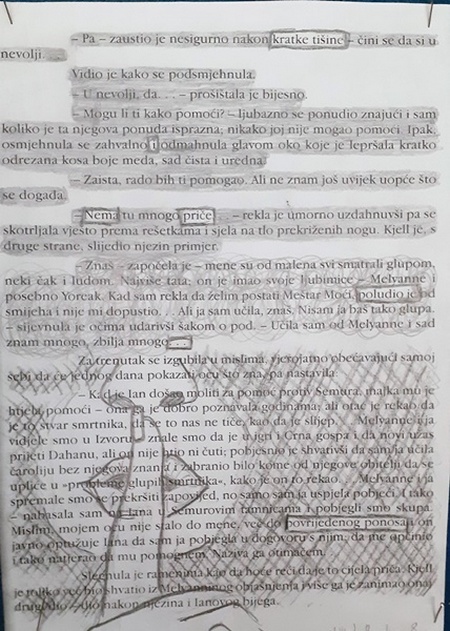 – Pa – zaustio je nesigurno nakon kratke tišine – čini se da si u
nevolji. . .
Vidio je kako se podsmjehnula.
– U nevolji, da. . . – prosištala je bijesno.
– Mogu li ti kako pomoći? – ljubazno se ponudio znajući i sam
koliko je ta njegova ponuda isprazna; nikako joj nije mogao pomoći. Ipak,
osmjehnula se zahvalno i odmahnula glavom oko koje je lepršala kratko
odrezana kosa boje meda, sad čista i uredna.
– Zaista, rado bih ti pomogao. Ali ne znam još uvijek uopće što
se događa.
– Nema tu mnogo priče . . . – rekla je umorno uzdahnuvši pa se
skotrljala vješto prema rešetkama i sjela na tlo prekriženih nogu. Kjell je, s
druge strane, slijedio njezin primjer.
– Znaš – započela je – mene su od malena svi smatrali glupom,
neki čak i ludom. Najviše tata; on je imao svoje ljubimice – Melyanne i
posebno Yoreak. Kad sam rekla da želim postati Meštar Moći, poludio je od
smijeha i nije mi dopustio. . . Ali ja sam učila, znaš. Nisam ja baš tako glupa.
– sijevnula je očima udarivši šakom o pod. – Učila sam od Melyanne i sad
znam mnogo, zbilja mnogo. . .
Za trenutak se izgubila u mislima, vjerojatno obećavajući samoj
sebi da će jednog dana pokazati ocu što zna, pa nastavila:
– Kad je Ian došao moliti za pomoć protiv Semura, majka mu je
htjela pomoći – ona ga je dobro poznavala godinama; ali otac je rekao da
je to stvar smrtnika, da se to nas ne tiče, kao da je slijep. . . Melyanne i ja
vidjele smo u Izvoru i znale smo da je u igri i Crna gospa i da novi užas
prijeti Dahanu, ali on nije htio ni čuti; pobjesnio je shvativši da sam ja učila
čaroliju bez njegova znanja i zabranio bilo kome od njegove obitelji da se
uplice u »probleme glupih smrtnika«, kako je on to rekao. . . Melyanne i ja
spremale smo se prekršiti zapovijed, no samo sam ja uspjela pobjeći. I tako
– nabasala sam na Iana u Semurovim tamnicama i pobjegli smo skupa.
Mislim, mojem ocu nije stalo do mene, već do povrijeđenog ponosa; on
javno optužuje Iana da sam ja pobjegla u dogovoru s njim, da me opčinio
i tako natjerao da mu pomognem. Naziva ga otimačem.
Slegnula je ramenima kao da hoće reći da je to cijela priča. Kjell
je toliko već bio shvatio iz Melyanninog objašnjenja i više ga je zanimao onaj
drugi dio – dio nakon njezina i Ianovog bijega.